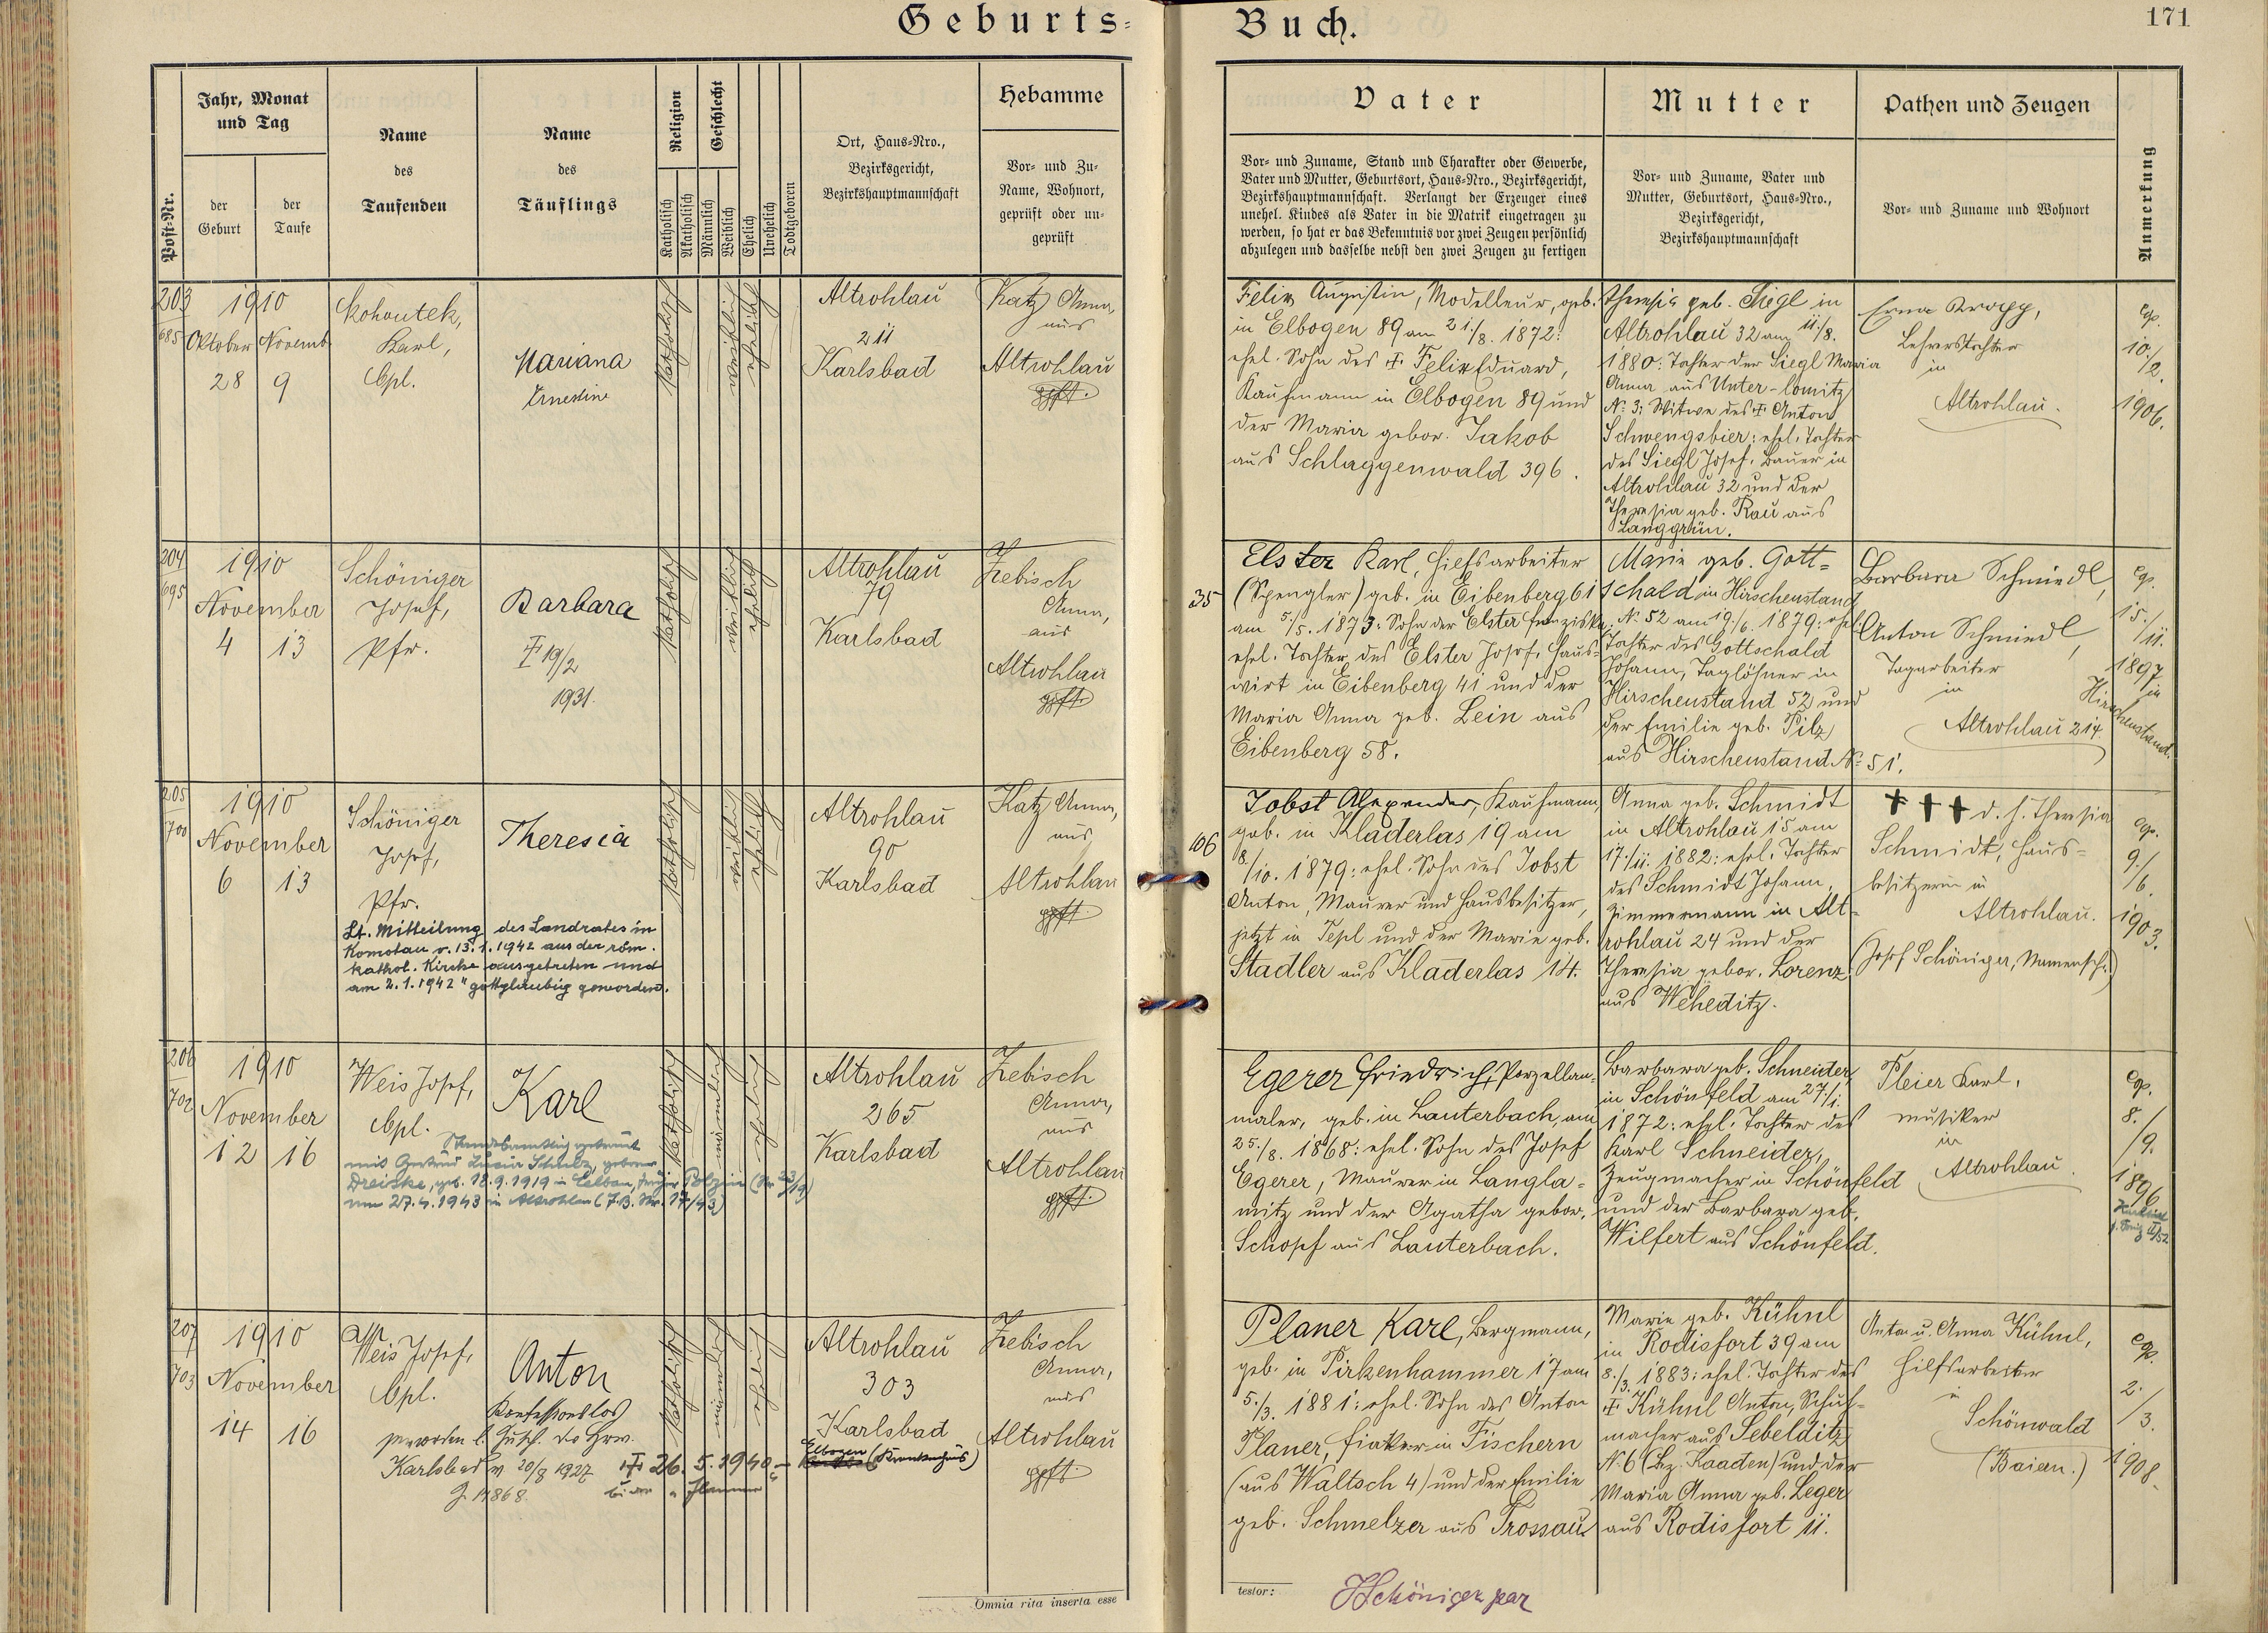 Geburts-
Buch.
171
Post-Nr.
Jahr, Monat
und Tag
der
Geburt
der
Taufe
Name
des
Taufenden
Name
des
Täuflings
Religion
Katholisch
Akatholisch
Geschlecht
Männlich
Weiblich
Ehelich
Unehelich
Todtgeboren
Ort, Haus-Nro.,
Bezirksgericht,
Bezirkshauptmannschaft
Hebamme
Vor- und Zu-
Name, Wohnort,
geprüft oder un-
geprüft
Vater
Vor- und Zuname, Stand und Charakter oder Gewerbe,
Vater und Mutter, Geburtsort, Haus-Nro., Bezirksgericht,
Bezirkshauptmannschaft. Verlangt der Erzeuger eines
unehel. Kindes als Vater in die Matrik eingetragen zu
werden, so hat er das Bekenntnis vor zwei Zeugen persönlich
abzulegen und dasselbe nebst den zwei Zeugen zu fertigen
Mutter
Vor- und Zuname, Vater und
Mutter, Geburtsort, Haus-Nro.,
Bezirksgericht,
Bezirkshauptmannschaft
Pathen und Zeugen
Vor- und Zuname und Wohnort
Anmerkung
203
685
1910
Oktober Novemb.
28 9
Kohoutek,
Karl,
Cpl.
Mariana
Ernestine
katholisch
weiblich
ehelich
Altrohlau
211
Karlsbad
Katz Anna,
aus
Altrohlau
gpft.
Felix Augustin, Modelleur, geb.
in Elbogen 89 am 21./8. 1872:
ehel. Sohn des † Felix Eduard,
Kaufmann in Elbogen 89 und
der Maria gebor. Jakob
aus Schlaggenwald 396.
Theresia geb. Siegl in
Altrohlau 32 am 11./8.
1880: Tochter der Siegl Maria
Anna aus Unter-lomitz
No 3: Witwe des † Anton
Schwengsbier: ehel. Tochter
des Siegl Josef, Bauer in
Altrohlau 32 und der
Theresia geb. Rau aus
Langgrün.
Erna Kropp,
Lehrerstochter
in
Altrohlau.
cop.
10./2.
1906.
204
695
1910
November
4 13
Schöniger
Josef,
Pfr.
Barbara
† 19/2
1931.
katholisch
weiblich
ehelich
Altrohlau
79
Karlsbad
Zebisch
Anna,
aus
Altrohlau
gpft.
35
Elster Karl, Hilfsarbeiter
(Spengler) geb. in Eibenberg 61
am 5./5. 1873: Sohn der Elster Franziska,
ehel. Tochter des Elster Josef, Haus-
wirt in Eibenberg 41 und der
Maria Anna geb. Lein aus
Eibenberg 58.
Marie geb. Gott-
schald in Hirschenstand
No 52 am 19./6. 1879: ehel.
Tochter des Gottschald
Johann, Taglöhner in
Hirschenstand 52 und
der Emilie geb. Pilz
aus Hirschenstand No 51.
Barbara Schmiedl,
Anton Schmiedl,
Tagarbeiter
in
Altrohlau 214.
cop.
15./11.
1897
in
Hirschenstand.
205
700
1910
November
6 13
Schöniger
Josef,
Pfr.
Lt. Mitteilung des Landrates in
Komotau v. 13.1.1942 aus der röm.
kathol. Kirche ausgetreten und
am 2.1.1942 "gottgläubig geworden.
Theresia
katholisch
weiblich
ehelich
Altrohlau
90
Karlsbad
Katz Anna,
aus
Altrohlau
gpft.
106
Jobst Alexander, Kaufmann
geb. in Kladerlas 19 am
8./10. 1879: ehel. Sohn des Jobst
Anton, Maurer und Hausbesitzer,
jetzt in Tepl und der Marie geb.
Stadler aus Kladerlas 14.
Anna geb. Schmidt
in Altrohlau 15 am
17./11. 1882: ehel. Tochter
des Schmidt Johann,
Zimmermann in Alt-
rohlau 24 und der
Theresia gebor. Lorenz
aus Weheditz.
+++ d. h. Theresia
Schmidt, Haus-
besitzerin in
Altrohlau.
(Josef Schöniger, Namensch.)
cop.
9./6.
1903.
206
702
1910
November
12 16
Weis Josef,
Cpl.
Standesamtlich getraut
mit Gertrud Luzia Schulz, geborene
Dreiske, geb. 18.9.1919 in
am 27.4.1943 in Altrohlau (F.B. Nr. 17/43)
Karl
katholisch
männlich
ehelich
Altrohlau
265
Karlsbad
Zebisch
Anna,
aus
Altrohlau
gpft.
Egerer Friedrich, Porzellan-
maler, geb. in Lauterbach am
25./8. 1868: ehel. Sohn des Josef
Egerer, Maurer in Langla-
mitz und der Agatha gebor.
Schopf aus Lauterbach.
Barbara geb. Schneider
in Schönfeld am 27./1.
1872: ehel. Tochter des
Karl Schneider,
Zeugmacher in Schönfeld
und der Barbara geb.
Wilfert aus Schönfeld.
Pleier Karl,
Musiker
in
Altrohlau.
cop.
8./9.
1896
207
703
1910
November
14 16
Weis Josef,
Cpl.
Anton
Konfessionslos
geworden l. Zusch. der Bzw.
Karlsbad v. 20/8 1927
Z. 14868.
† 26.5.1940 -
katholisch
männlich
ehelich
Altrohlau
303
Karlsbad
Elbogen (Krankenhaus)
Zebisch
Anna,
aus
Altrohlau
gpft.
Planer Karl, Bergmann,
geb. in Pirkenhammer 17 am
5./3. 1881: ehel. Sohn des Anton
Planer, Fiaker in Fischern
(aus Waltsch 4) und der Emilie
geb. Schmelzer aus Trossau
Marie geb. Kühnl
in Rodisfort 39 am
8./3. 1883: ehel. Tochter des
† Kühnl Anton, Schuh-
macher aus Sebelditz
No 6 (Bez. Kaaden) und der
Maria Anna geb. Leger
aus Rodisfort 11.
Anton u. Anna Kühnl,
Hilfsarbeiter
in
Schönwald
(Baiern.)
cop.
2./3.
1908.
Omnia rita inserta esse
testor:
JSchöniger par